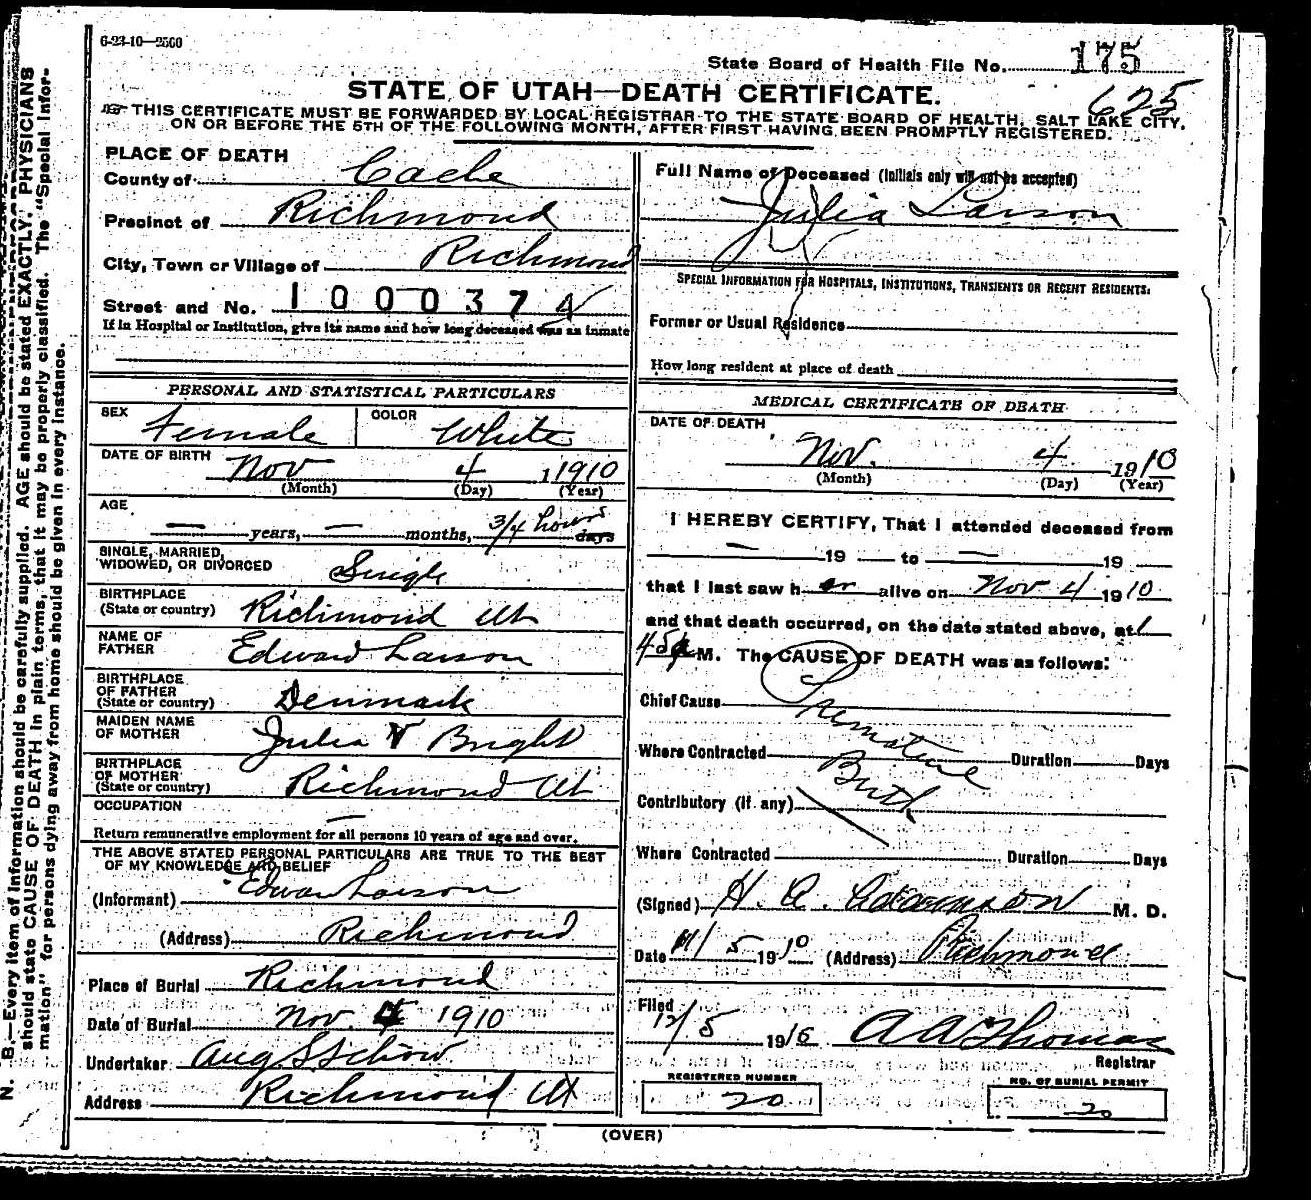 6-23-10—2500
State Board of Health File No. 175
625
STATE OF UTAH—DEATH CERTIFICATE.
THIS CERTIFICATE MUST BE FORWARDED BY LOCAL REGISTRAR TO THE STATE BOARD OF HEALTH, SALT LAKE CITY,
ON OR BEFORE THE 5TH OF THE FOLLOWING MONTH, AFTER FIRST HAVING BEEN PROMPTLY REGISTERED.
PLACE OF DEATH
County of Cache
Precinct of Richmond
City, Town or Village of Richmond
Street and No. 1000374
If in Hospital or Institution, give its name and how long deceased was an inmate
Full Name of Deceased (Initials only will not be accepted)
Julia Larson
SPECIAL INFORMATION FOR HOSPITALS, INSTITUTIONS, TRANSIENTS OR RECENT RESIDENTS:
Former or Usual Residence
How long resident at place of death
PERSONAL AND STATISTICAL PARTICULARS
SEX Female COLOR White
DATE OF BIRTH Nov 4 1 1910
(Month) (Day) (Year)
AGE
— years, — months, 3/4 hours days
SINGLE, MARRIED,
WIDOWED, OR DIVORCED Single
BIRTHPLACE
(State or country) Richmond Ut
NAME OF
FATHER Edward Larson
BIRTHPLACE
OF FATHER
(State or country) Denmark
MAIDEN NAME
OF MOTHER Julia V Bright
BIRTHPLACE
OF MOTHER
(State or country) Richmond Ut
OCCUPATION —
Return remunerative employment for all persons 10 years of age and over.
THE ABOVE STATED PERSONAL PARTICULARS ARE TRUE TO THE BEST
OF MY KNOWLEDGE AND BELIEF
(Informant) Edwar Larson
(Address) Richmond
Place of Burial Richmond
Date of Burial Nov. 4 1910
Undertaker Aug S Schow
Address Richmond Ut
MEDICAL CERTIFICATE OF DEATH
DATE OF DEATH
Nov. 4 1910
(Month) (Day) (Year)
I HEREBY CERTIFY, That I attended deceased from
— 19 — to — 19
that I last saw her alive on Nov 4 1910
and that death occurred, on the date stated above, at 1
45 P M. The CAUSE OF DEATH was as follows:
Chief Cause Premature
Where Contracted Birth Duration Days
Contributory (if any)
Where Contracted Duration Days
(Signed) H. C. Adamson M. D.
Date 11/5 1910 (Address) Richmond
Filed
12/5 1910 A A Thomas
Registrar
REGISTERED NUMBER
20
NO. OF BURIAL PERMIT
20
(OVER)
N. B.—Every item of information should be carefully supplied. AGE should be stated EXACTLY. PHYSICIANS
should state CAUSE OF DEATH in plain terms, that it may be properly classified. The "Special Infor-
mation" for persons dying away from home should be given in every instance.